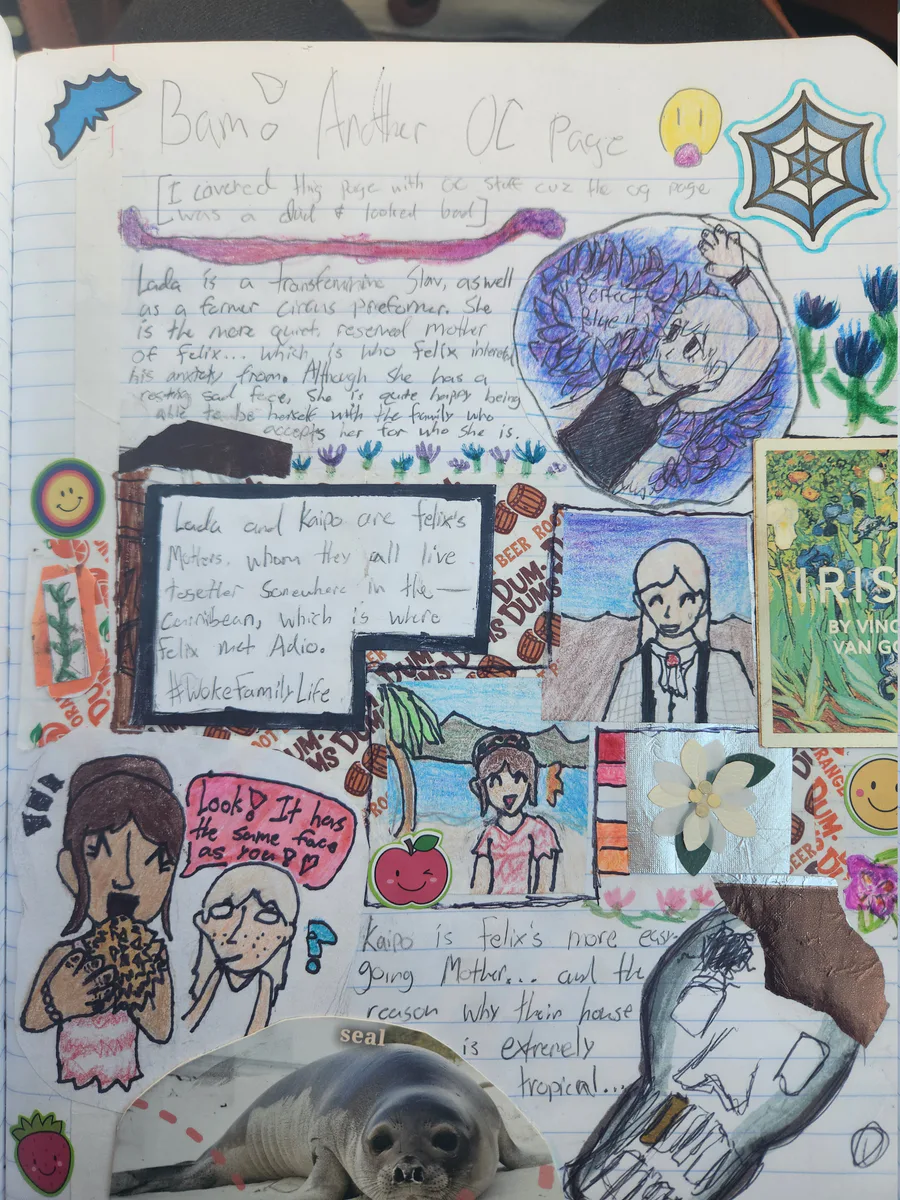 Bam! Another OC Page
[I covered this page with oc stuff cuz the og page
was a dud & looked bad]
Lada is a transfeminine Slav, aswell
as a former circus preformer. She
is the more quiet, reserved mother
of Felix... which is who Felix
his anxiety from. Although she has a
resting sad face, she is quite happy being
able to be herself with the family who
accepts her for who she is.
"Perfect
Blue"
Lada and Kaipo are Felix's
Mothers, whom they all live
together somewhere in the—
Carribean, which is where
Felix met Adio.
#WokeFamilyLife
BEER ROO
DUM-
MS DUMS
IRIS
BY VINC
VAN GO
DUM-
MS
Look! It has
the same face
as you!
?
Kaipo is Felix's more easy
going Mother... and the
reason why their house
is extremely
tropical...
seal